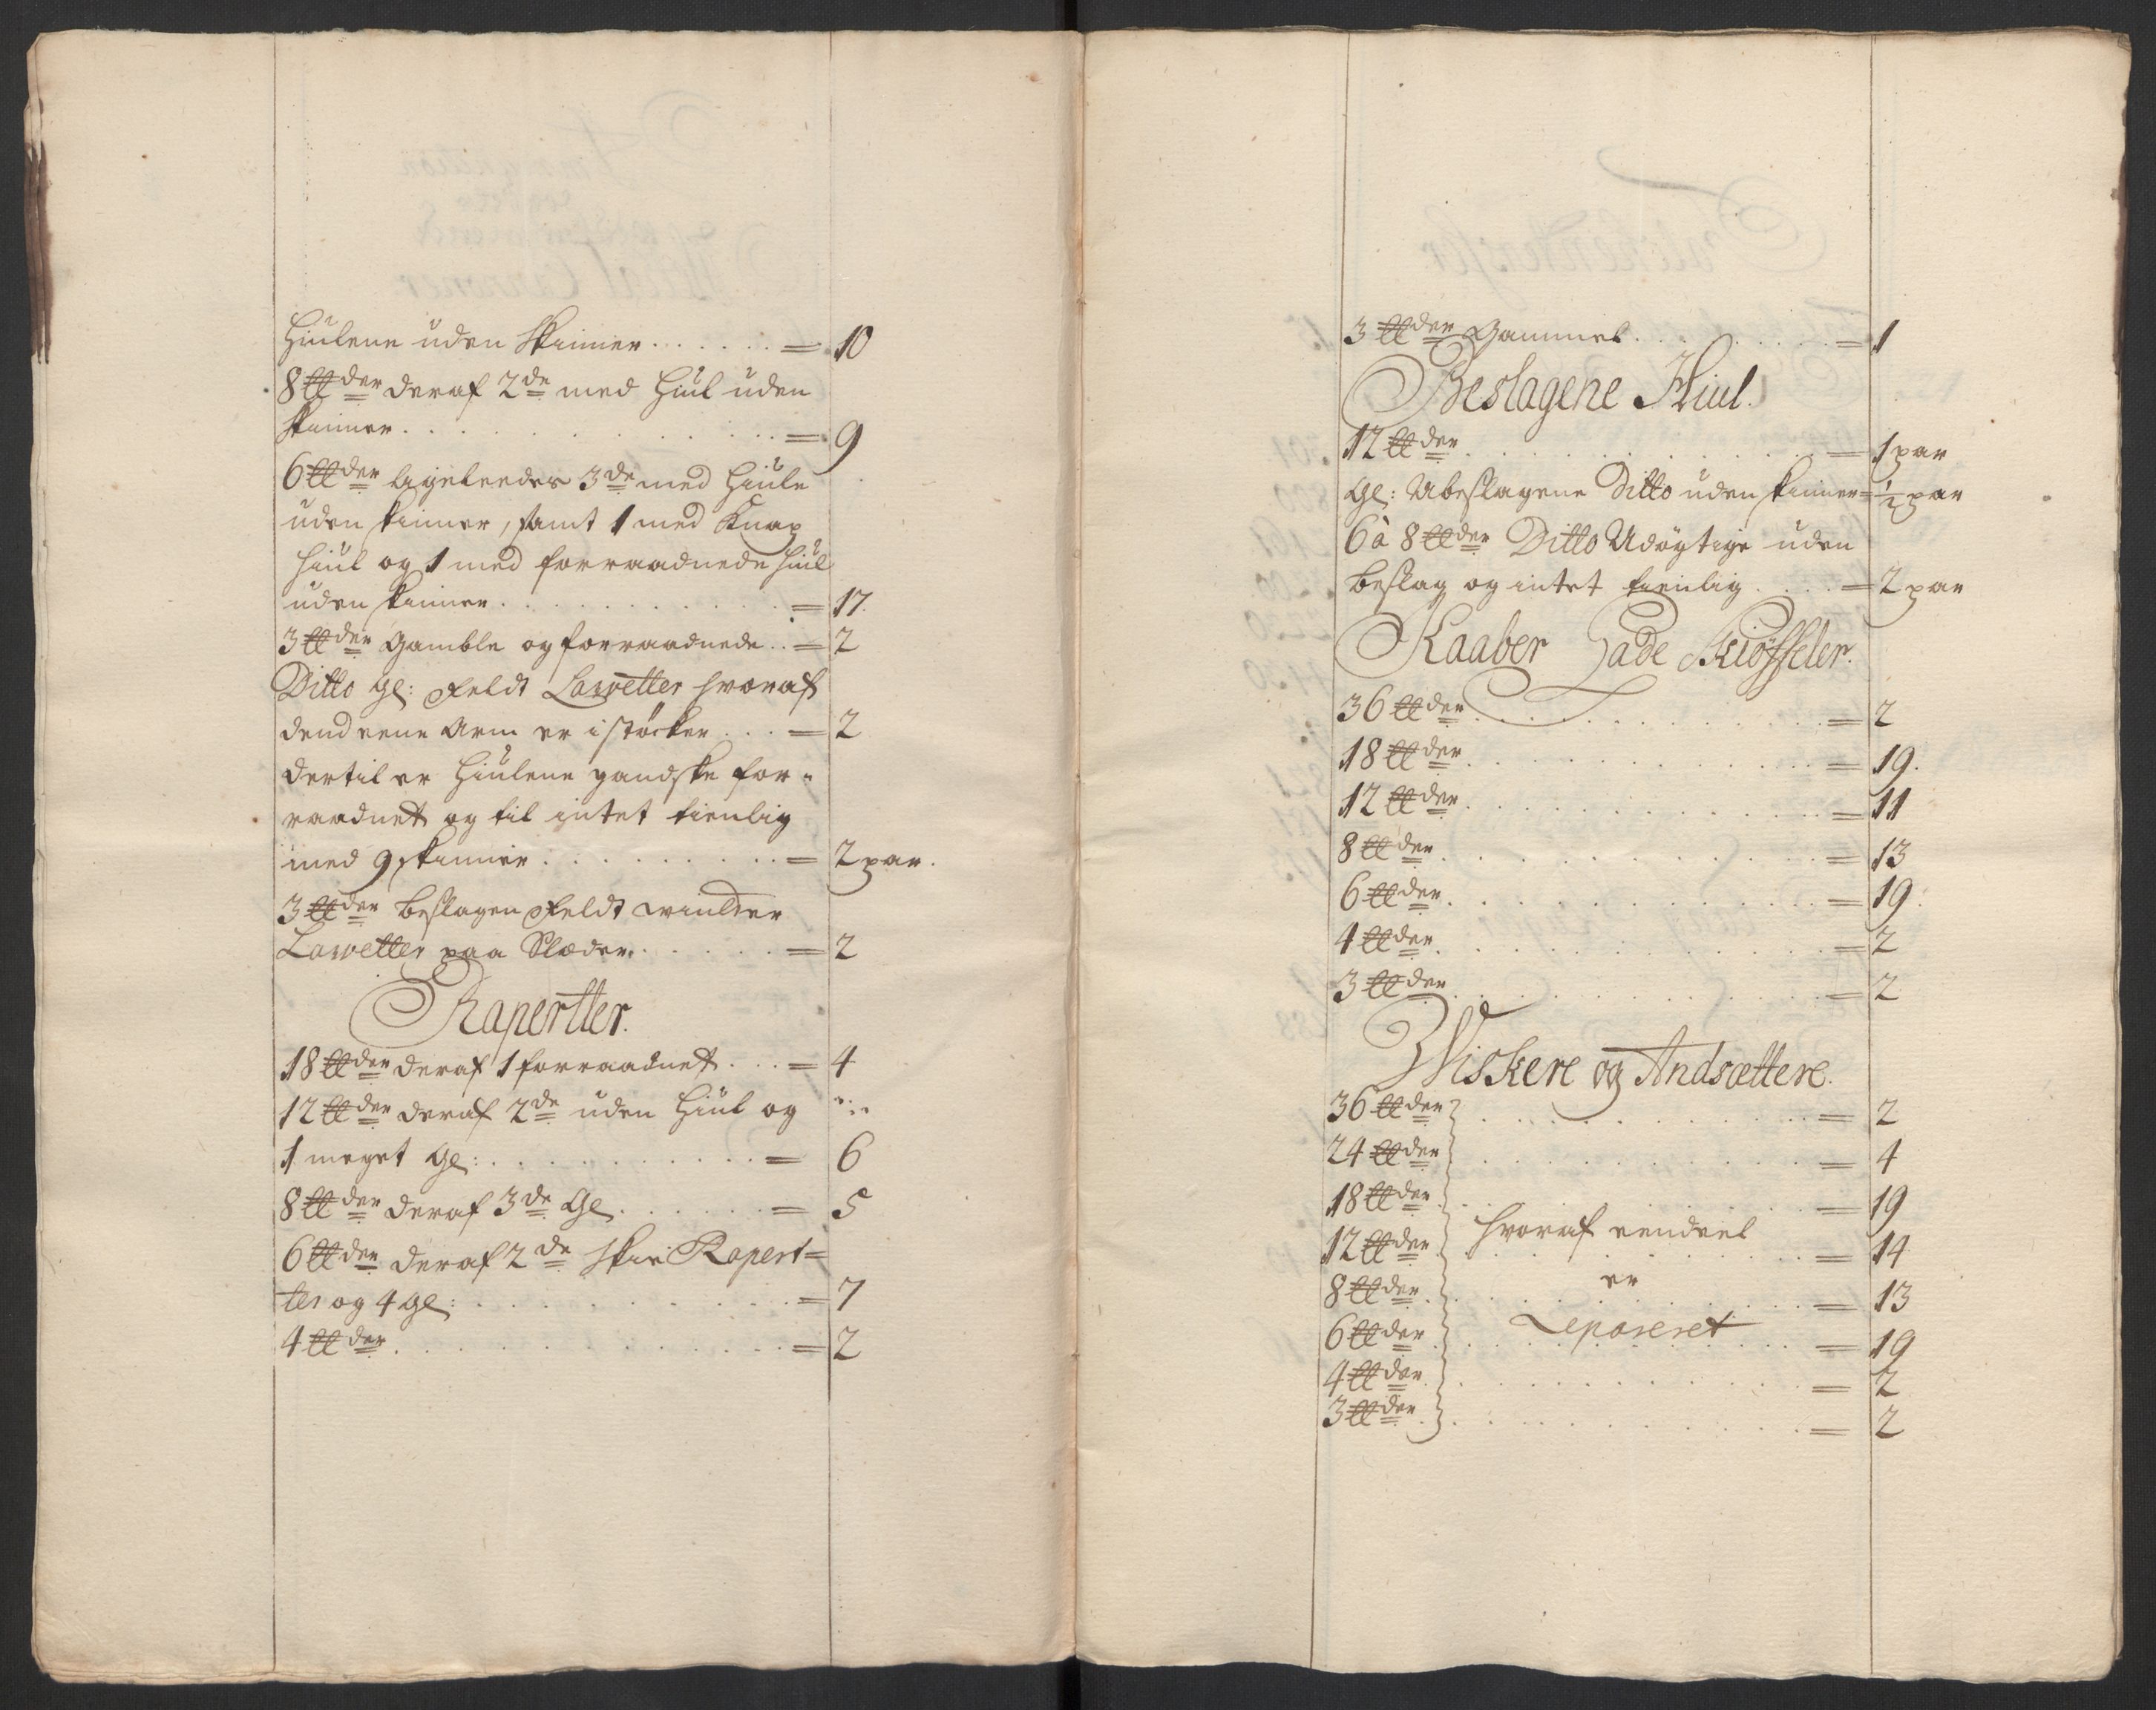 Hiulene uden Skinner . . . . . . = 10
8 ℔der deraf 2de med Hiul uden
Skinner . . . . . . . . . = 9
6 ℔der ligeleedes 3de med Hiule
uden skinner, samt 1 med Knap
Hiul og 1 med forraadnede Hiul
uden skinner . . . . . . . . = 17.
3 ℔der Gamble og forraadnede . . = 2
Ditto gl: Feldt Lawetter hvoraf
dend eene Arm er i støcker . . . = 2
dertil er Hiulene gandske for-
raadnet og til intet tienlig
med 9 skinner . . . . . . . . = 2 par.
3 ℔der beslagen Feldt
Lawetter paa Slæder . . . . . = 2
Rapertter.
18 ℔der deraf 1 forraadnet . . . = 4
12 ℔der deraf 2de uden Hiul og
1 meget gl: . . . . . . . . = 6
8 ℔der deraf 3de Gl. . . . . . = 5
6 ℔der deraf 2de Skie Rapert=
ter og 4 gl: . . . . . . . . = 7
4 ℔der . . . . . . . . . . = 2
3 ℔der Gammel . . . . . . . = 1
Beslagene Hiul.
12 ℔der . . . . . . . . . = 1 par
gl: Ubeslagene Ditto uden skinner = ½ par
6 à 8 ℔der Ditto Udøgtige uden
beslag og intet tienlig . . . . = 2 par
Kaaber Lade Skiøffeler.
36 ℔der . . . . . . . . . = 2
18 ℔der . . . . . . . . . = 19.
12 ℔der . . . . . . . . . = 11
8 ℔der . . . . . . . . . = 13
6 ℔der . . . . . . . . . = 19.
4 ℔der . . . . . . . . . = 2
3 ℔der . . . . . . . . . = 2
Wiskere og Andsættere.
36 ℔der . . . . . . . . . = 2
24 ℔der . . . . . . . . . = 4
18 ℔der . . . . . . . . . = 19
hvoraf eendeel
12 ℔der . . . . . . . . . = 14
er
8 ℔der . . . . . . . . . = 13
Repareret
6 ℔der . . . . . . . . . = 19
4 ℔der . . . . . . . . . = 2
3 ℔der . . . . . . . . . = 2